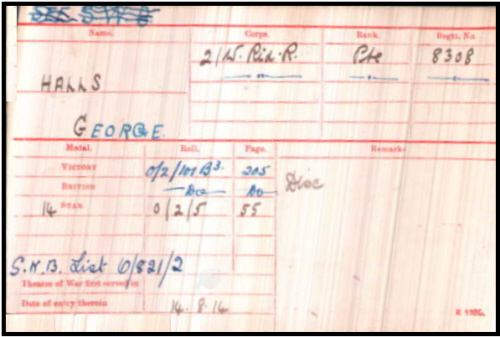 Name. Corps. Rank. Regtl. No.
2/W. Rid. R. Pte 8308
HALLS
GEORGE.
Medal. Roll. Page. Remarks
VICTORY O/2/101 B3. 205
BRITISH Do Do Disc
14 STAR O/2/5 55
S.W.B. List O/821/2
Theatre of War first served in
Date of entry therein 14. 8. 14
K 1380.